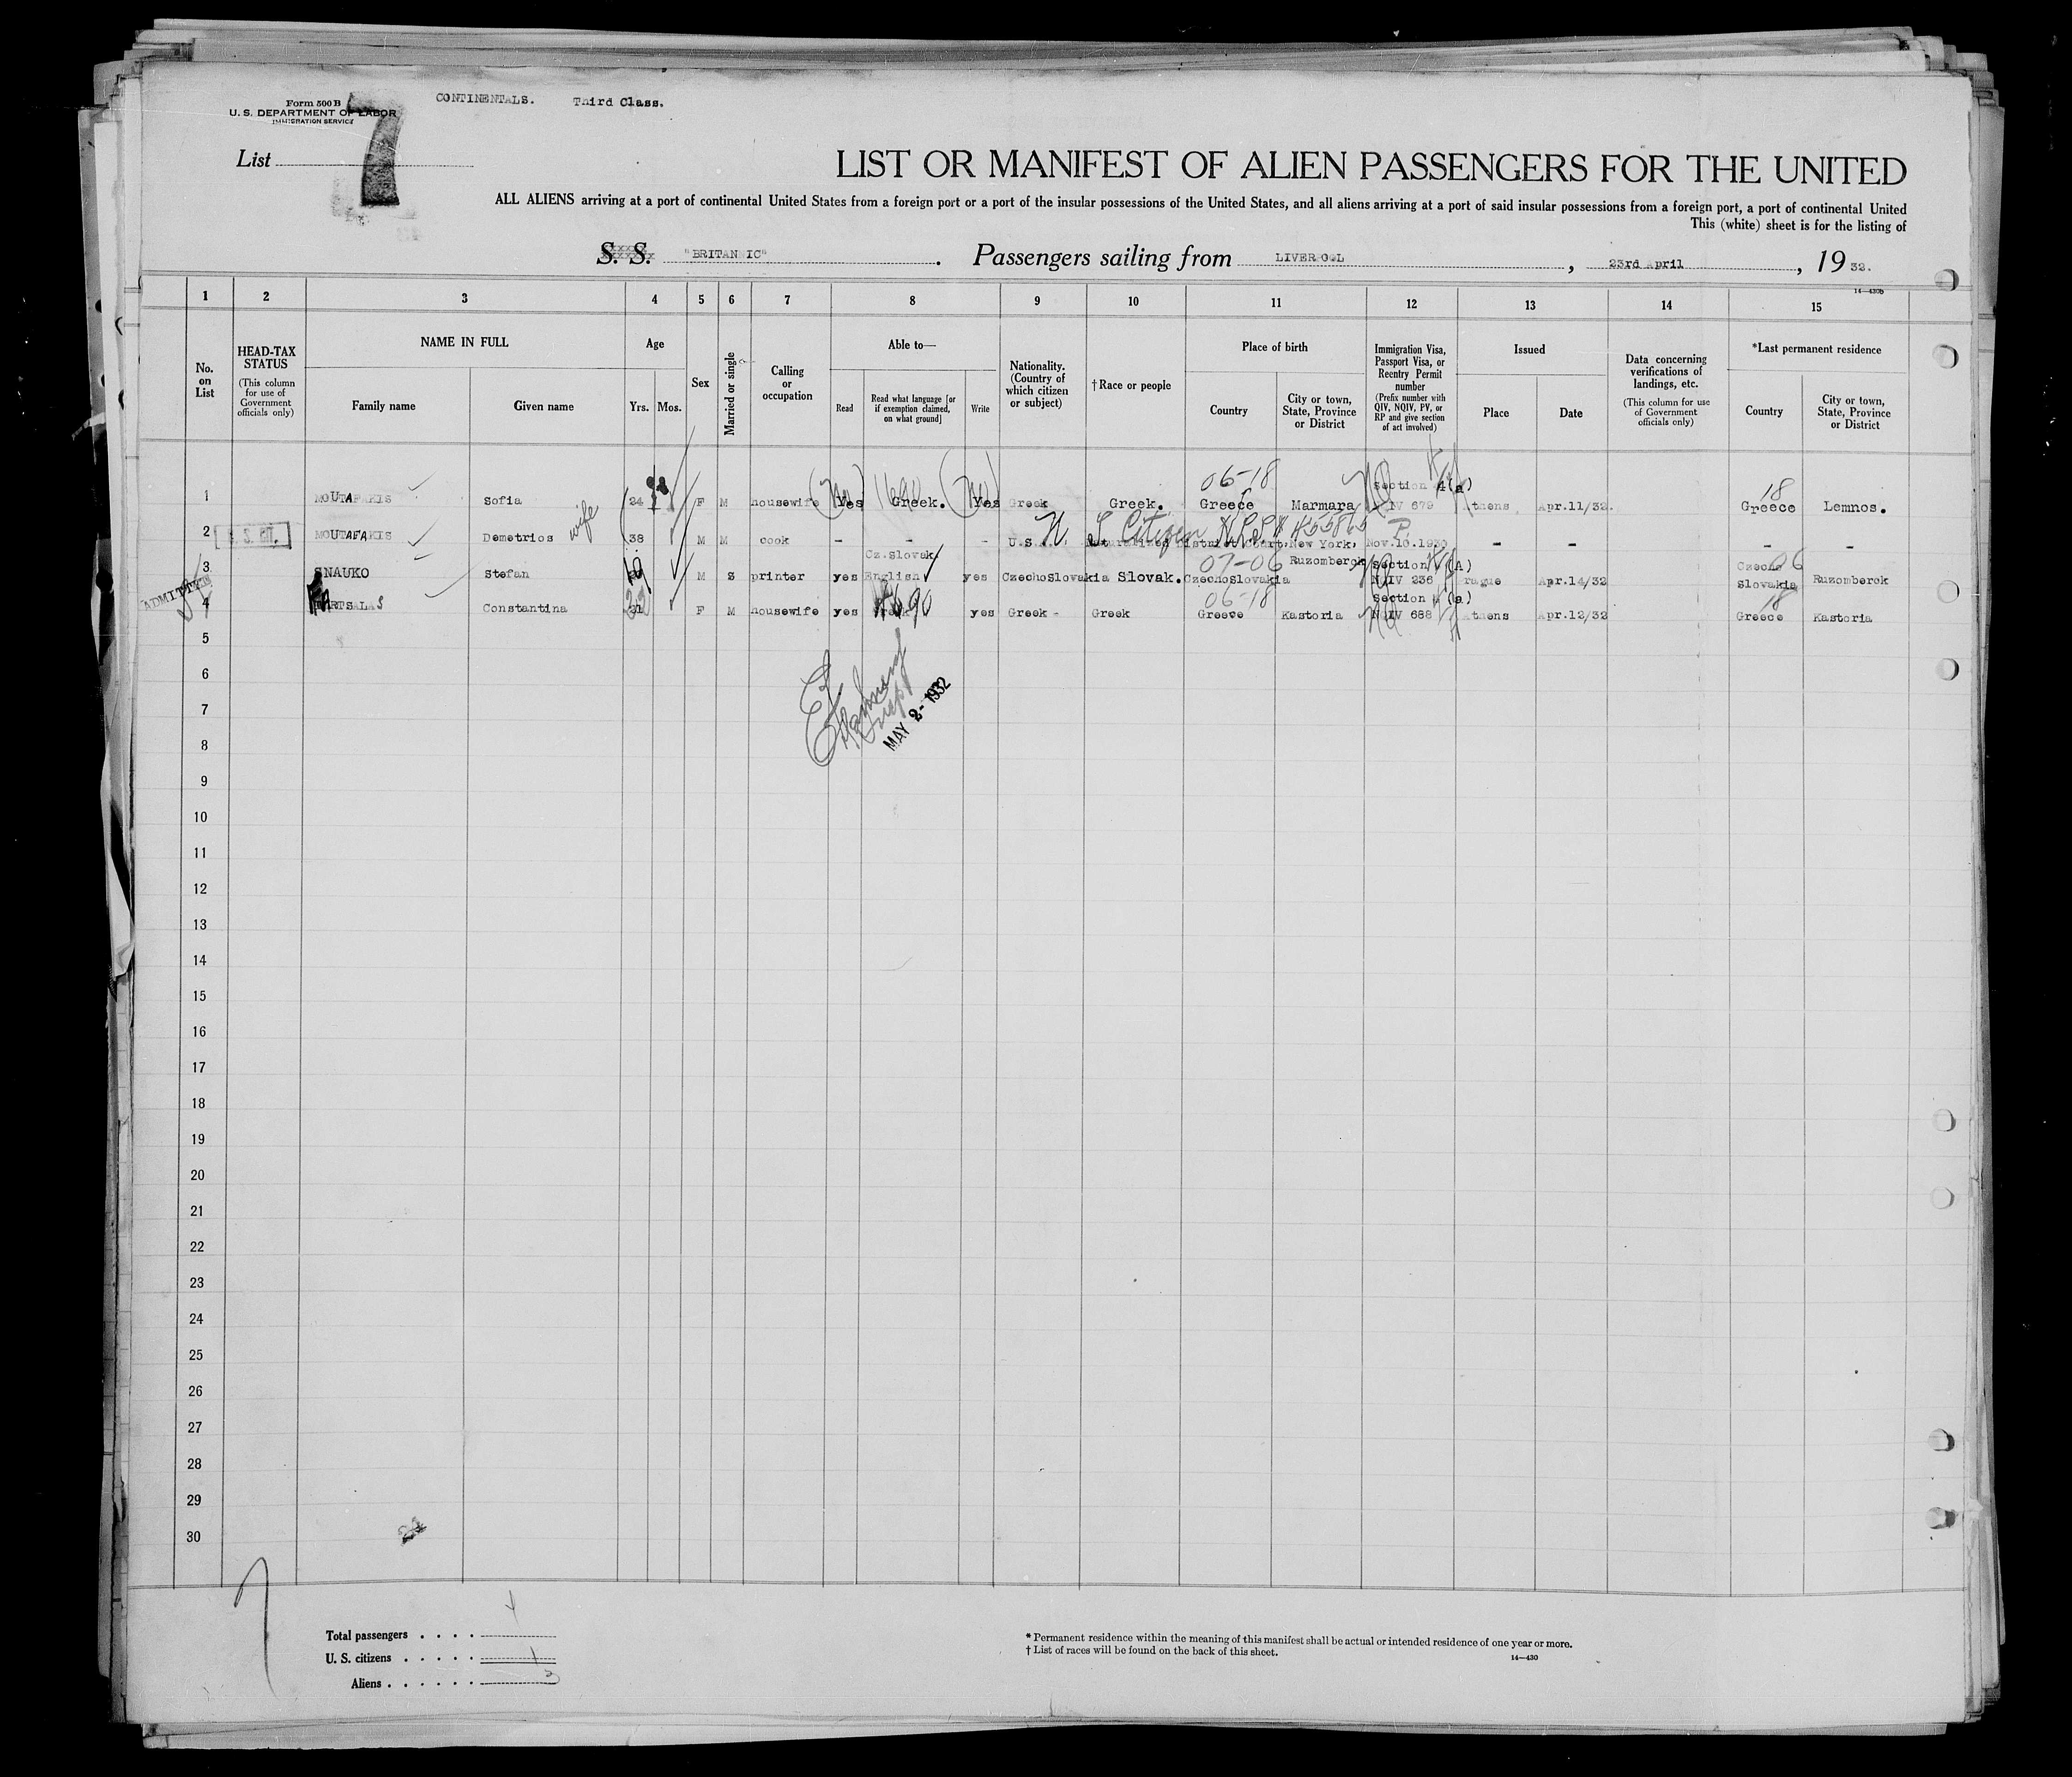 Form 500 B
U. S. DEPARTMENT OF LABOR
IMMIGRATION SERVICE
CONTINENTALS. Third Class.
List 7
LIST OR MANIFEST OF ALIEN PASSENGERS FOR THE UNITED
ALL ALIENS arriving at a port of continental United States from a foreign port or a port of the insular possessions of the United States, and all aliens arriving at a port of said insular possessions from a foreign port, a port of continental United
This (white) sheet is for the listing of
S. S. "BRITANNIC" . Passengers sailing from LIVERPOOL , 23rd April , 19 32.
14—430b
1 2 3 4 5 6 7 8 9 10 11 12 13 14 15
No. on List
HEAD-TAX STATUS
(This column for use of Government officials only)
NAME IN FULL
Family name Given name
Age
Yrs. Mos.
Sex
Married or single
Calling or occupation
Able to—
Read
Read what language [or if exemption claimed, on what ground]
Write
Nationality. (Country of which citizen or subject)
†Race or people
Place of birth
Country
City or town, State, Province or District
Immigration Visa, Passport Visa, or Reentry Permit number
(Prefix number with QIV, NQIV, PV, or RP and give section of act involved)
Issued
Place Date
Data concerning verifications of landings, etc.
(This column for use of Government officials only)
*Last permanent residence
Country
City or town, State, Province or District
06-18 Section 4(a) 18
1 MOUTAFAKIS Sofia 24 F M housewife Yes Greek. Yes Greek Greek. Greece Marmara 679 Athens Apr.11/32. Greece Lemnos.
wife
2 MOUTAFAKIS Demetrios 38 M M cook - - - U.S. Naturalized District Court, New York, Nov.10.1930 - - - -
Citizen
Cz.Slovak 07-06 Ruzomberok Section (A) Czecho 06
3 SNAUKO Stefan 19 M S printer yes English yes CzechoSlovakia Slovak. CzechoSlovakia NQIV 236 Prague Apr.14/32 Slovakia Ruzomberok
ADMITTED
06-18 Section (a) 18
4 Constantina 31 F M housewife yes Greek yes Greek - Greek Greeve Kastoria NQIV 688 Athens Apr.12/32 Greece Kastoria
5
6
7
MAY 2- 1932
8
9
10
11
12
13
14
15
16
17
18
19
20
21
22
23
24
25
26
27
28
29
30
7
Total passengers . . . . 4
U. S. citizens . . . . . 1
Aliens . . . . . . 3
* Permanent residence within the meaning of this manifest shall be actual or intended residence of one year or more.
† List of races will be found on the back of this sheet.
14—430